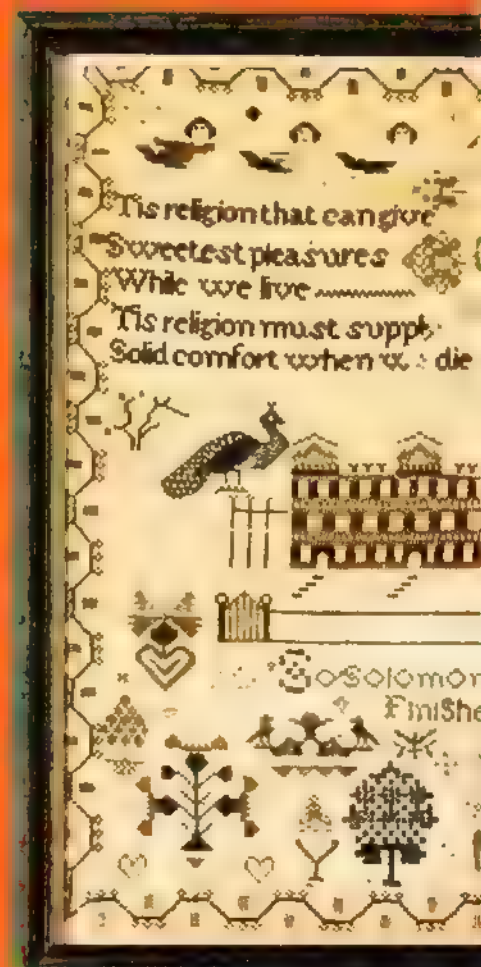 Tis religion that can give
Sweetest pleasures
While we live
Tis religion must supply
Solid comfort when we die
So Solomon
Finishe